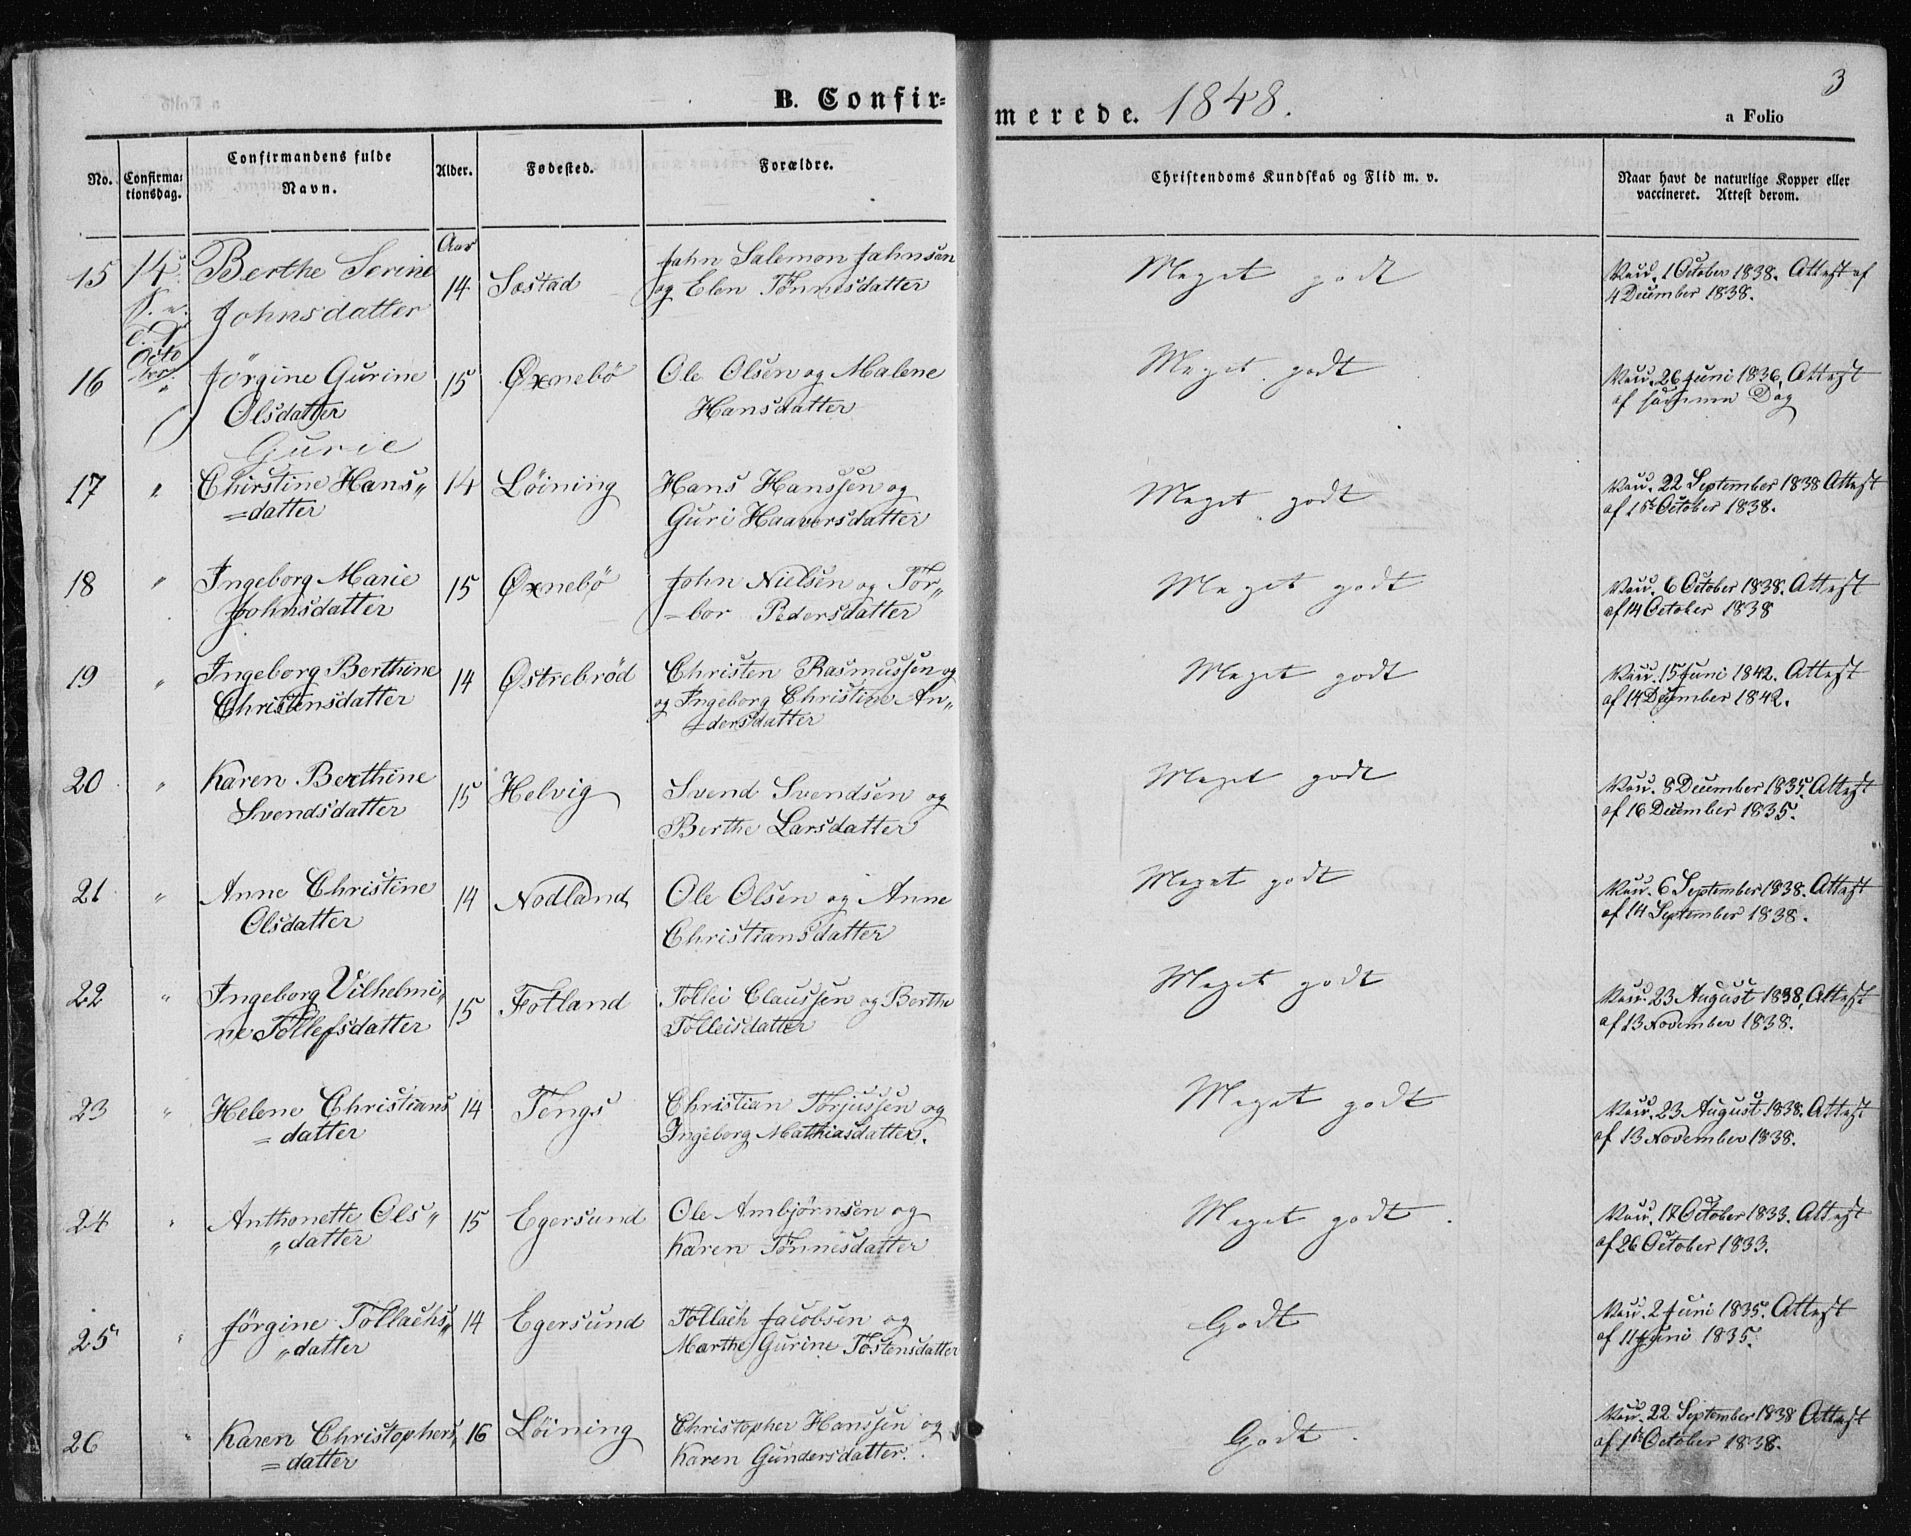 B. Confir-
merede. 1848.
3
a Folio
No.
Confirma-
tionsdag.
Confirmandens fulde
Navn.
Alder.
Fødested.
Forældre.
Christendoms Kundskab og Flid m. v.
Naar havt de naturlige Kopper eller
vaccineret. Attest derom.
Aar
15 14 Berthe Serine 14 Sæstad John Salemon Johnsen Meget godt Vacc. 1 October 1838. Attest af
S. e. Johnsdatter og Elen Tønnesdatter 4 December 1838.
Octo
ber
16 " Jørgine Gurine 15 Øxnebø Ole Olsen og Malene Meget godt Vacc. 26 Juni 1836, Attest
Olsdatter Hansdatter af samme Dag
Gurie
17 " Chirstine Hans„ 14 Løining Hans Hanssen og Meget godt Vacc. 22 September 1838 Attest
=datter Guri Haaversdatter af 1st October 1838.
18 " Ingeborg Marie 15 Øxnebø John Nielsen og Tor„ Meget godt Vacc. 6 October 1838. Attest
Johnsdatter =bor Pedersdatter af 14 October 1838
19 " Ingeborg Berthine 14 Østrebrød Christen Rasmussen og Meget godt Vacc. 15 Juni 1842. Attest
Christensdatter og Ingeborg Christine An„ af 14 December 1842.
dersdatter
20 " Karen Berthine 15 Helvig Svend Svendsen og Meget godt Vacc. 8 December 1835. Attest
Svendsdatter Berthe Larsdatter af 16 December 1835.
21 " Anne Christine 14 Nodland Ole Olsen og Anne Meget godt Vacc. 6 September 1838. Attest
Olsdatter Christiansdatter af 14 September 1838.
22 " Ingeborg Vilhelmi„ 15 Fotland Tollei Claussen og Berthe Meget godt Vacc. 23 August 1838, Attest
ne Tollefsdatter Tolleisdatter af 13 November 1838.
23 " Helene Christians 14 Tengs Christian Torjussen og Meget godt Vacc. 23 August 1838. Attest
=datter Ingeborg Mathiasdatter. af 13 November 1838.
24 " Anthonette Ols„ 15 Egersund Ole Ambjørnsen og Meget godt. Vacc. 17 October 1833. Attest
„datter Karen Tønnesdatter af 26 October 1833.
25 " Jørgine Tollachs„ 14 Egersund Tollach Jacobsen og Godt Vacc. 2 Juni 1835. Attest
„datter Marthe Gurine Tostensdatter af 11 Juni 1835.
26 " Karen Christophers„ 16 Løining Christopher Hanssen og Godt. Vacc. 22 September 1838 Attest
=datter Karen Gundersdatter. af 1st October 1838.